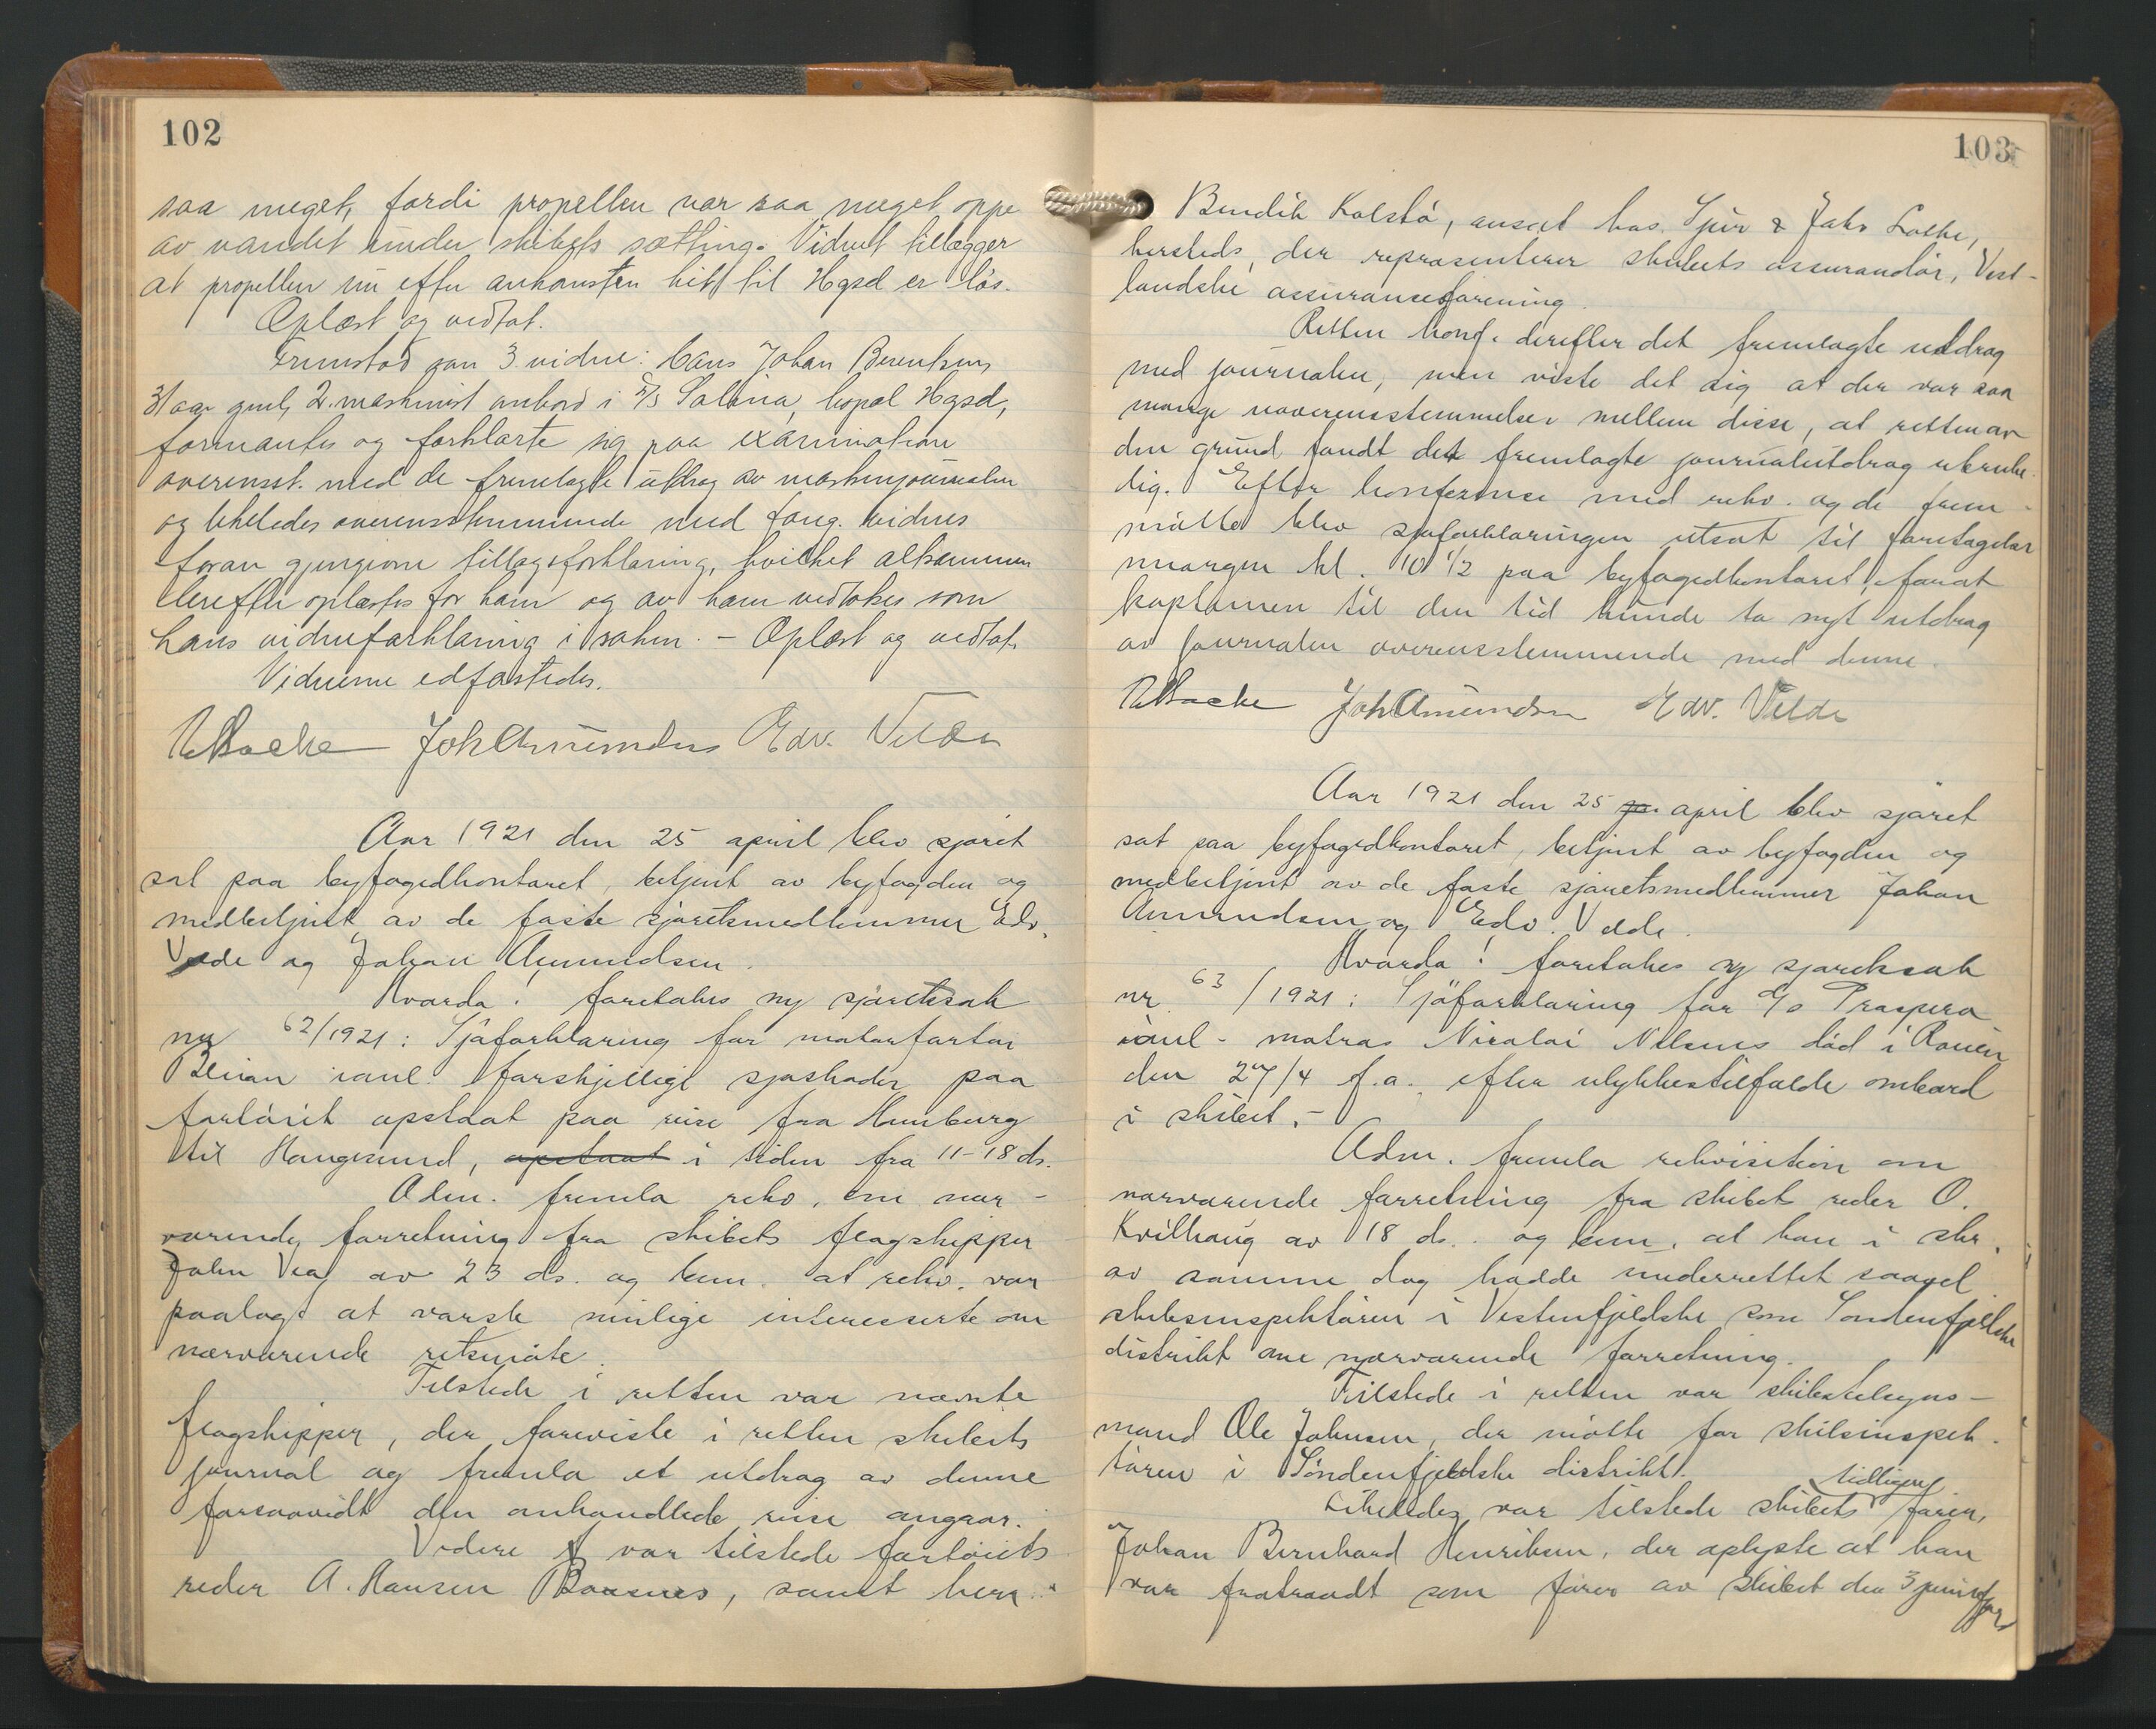 102
saa meget, fordi propellen var saa meget oppe
av vandet under skibets sætting. Vidnet tillægger
at propellen nu efter ankomsten hit til Hgsd er løs.
Oplæst og vedtat.
Fremstod som 3. vidne: Hans Johan Berentsen,
31 aar gml, 2. maskinist ombord i S/S Salina, bopæl Hgsd,
formantes og forklarte sig paa examination
overensst. med de fremlagte utdrag av maskinjournalen
og likeledes overensstemmende med foreg. vidnes
foran gjengivne tillægsforklaring, hvilket altsammen
derefter oplæstes for ham og av ham vedtokes som
hans vidneforklaring i saken. - Oplæst og vedtat.
Vidnerne edfæstedes.
Joh Amundsen Edv. Velde
Aar 1921 den 25 april blev sjøret
sat paa byfogedkontoret, betjent av byfogden og
medbetjent av de faste sjøretsmedlemmer Edv.
Velde og Johan Amundsen.
Hvorda! foretakes ny sjøretssak
nr 62/1921: Sjøforklaring for motorfartøi
anl. forskjellige sjøskader paa
fartøiet opstaat paa reise fra Hamburg
til Haugesund, opstaat i tiden fra 11-18 ds.
Adm. fremla rekv. om nær-
værende forretning fra skibets flagskipper
John Vea av 23 ds. og bem. at rekv. var
paalagt at varsle mulige interesserte om
nærværende retsmøte.
Tilstede i retten var nævnte
flagskipper, der foreviste i retten skibets
journal og fremla et utdrag av denne
forsaavidt den omhandlede reise angaar.
Videre var tilstede fartøiets
reder A. Hansen Baasnes, samt herr
103
Bendik Kolstø, ansat hos Sjur & Jakv Lothe,
hersteds, der repræsenterer skibets assurandør, Vest-
landske assuranceforening.
Retten konf. derefter det fremlagte utdrag
med journalen, men viste det sig at der var saa
mange uoverensstemmelser mellem disse, at retten av
den grund fandt det fremlagte journalutdrag ubruke-
lig. Efter konferense med rekv. og de frem-
møtte blev sjøforklaringen utsat til foretagelse
morgen kl. 10 1/2 paa byfogedkontoret, forat
kaptainen til den tid kunde ta nyt utdrag
av journalen overensstemmende med denne.
Joh Amundsen Edv. Velde
Aar 1921 den 25 april blev sjøret
sat paa byfogedkontoret, betjent av byfogden og
medbetjent av de faste sjøretsmedlemmer Johan
Amundsen og Edv. Velde.
Hvorda! foretakes ny sjøretssak
nr. 63/1921: Sjøforklaring for Prospero
anl. matros Nicolai Nilsens død i Rouen
den 27/4 f.a. efter ulykkestilfælde ombord
i skibet. -
Adm. fremla rekvisition om
nærværende forretning fra skibet reder O.
Kvilhaug av 18 ds. og bem. at han i skr.
av samme dag hadde underrettet saavel
skibsinspektøren i Vestenfjeldske som Søndenfjeldske
distrikt om nærværende forretning.
Tilstede i retten var skibstilsyns-
mand Ole Johnsen, der møtte for skibsinspek-
tøren i Søndenfjeldske distrikt.
Likeledes var tilstede skibets tidligere fører,
Johan Bernhard Henriksen, der oplyste at han
var fratraadt som fører av skibet den 3 juni